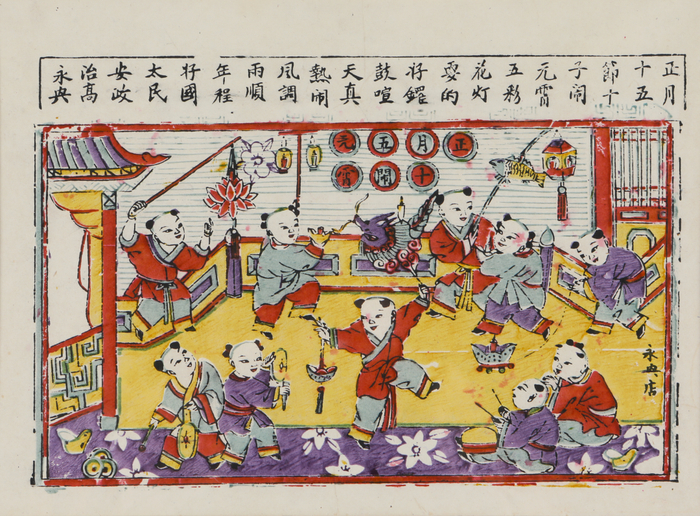 正月
十五
節十
子闹
元霄
五彩
花灯
耍的
好鑼
鼓喧
天真
熱闹
風調
雨順
年程
好國
太民
安政
治高
永興
正月十五鬧元霄
永興店